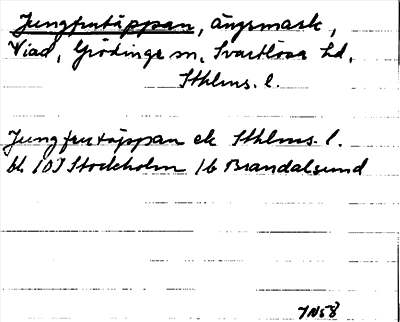 Jungfrutäppan, ängsmark,
Viad, Grödinge sn, Svartlösa hd,
Sthlms. l.
Jungfrutäppan ek Sthlms. l.
bl. 103 Stockholm 1b Brandalsund
1958